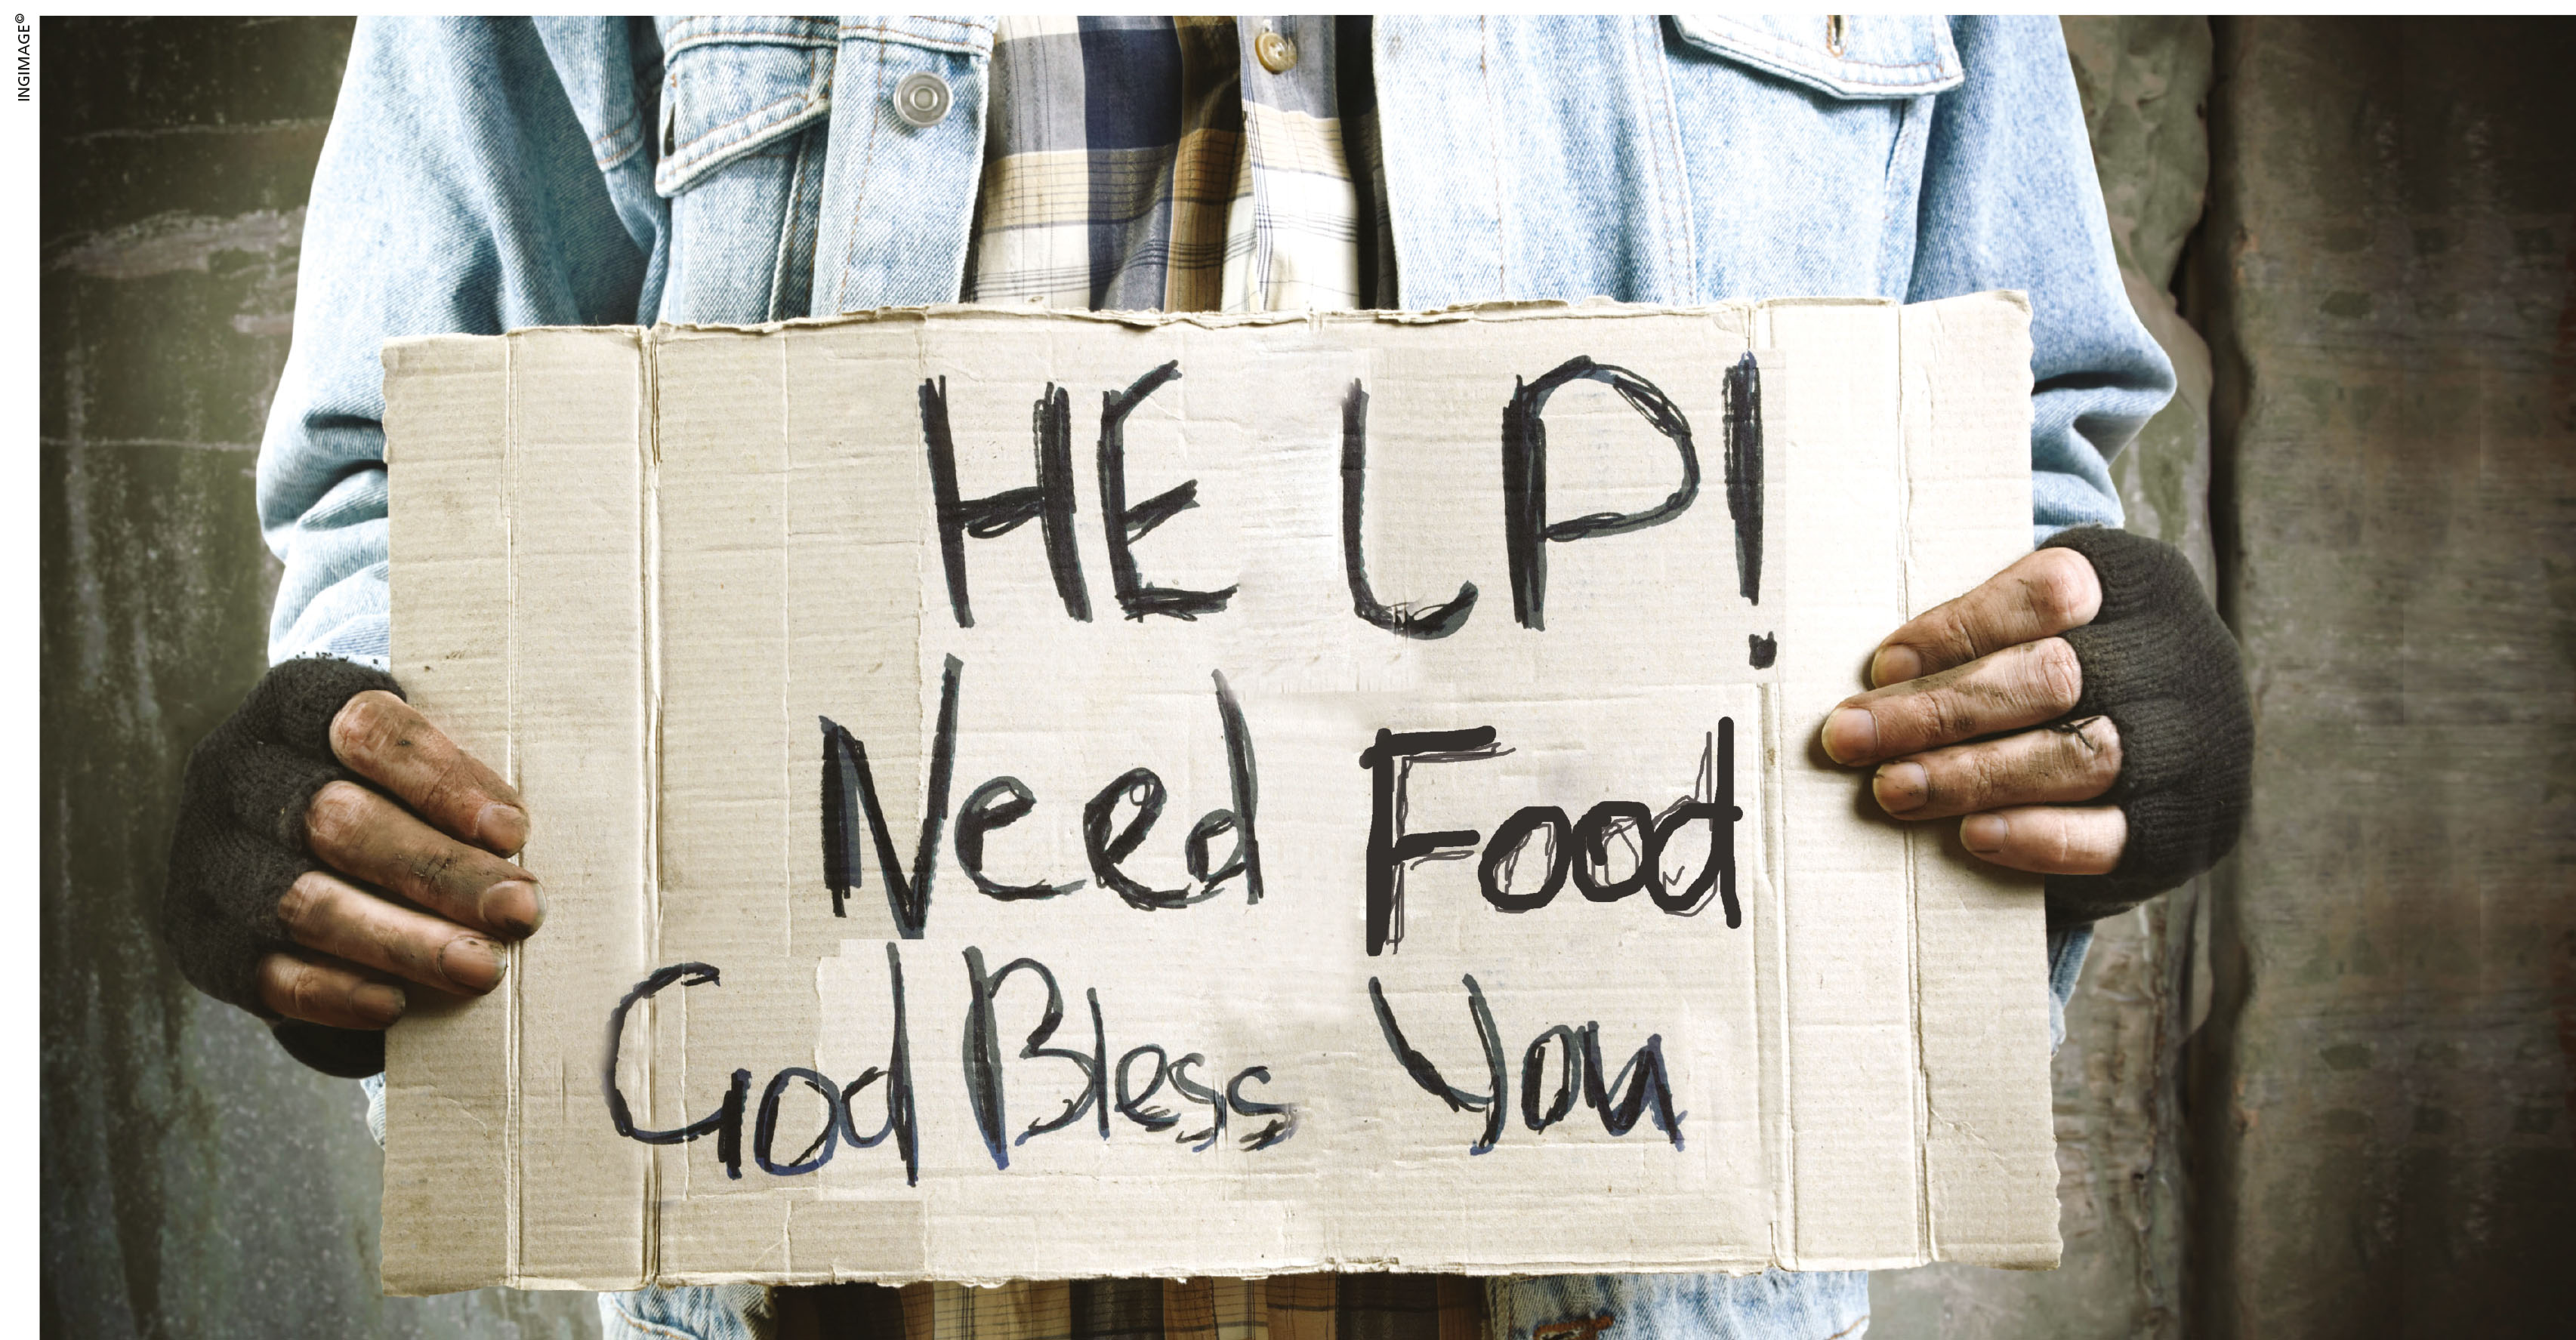 INGIMAGE©
HELP!
Need Food
God Bless You